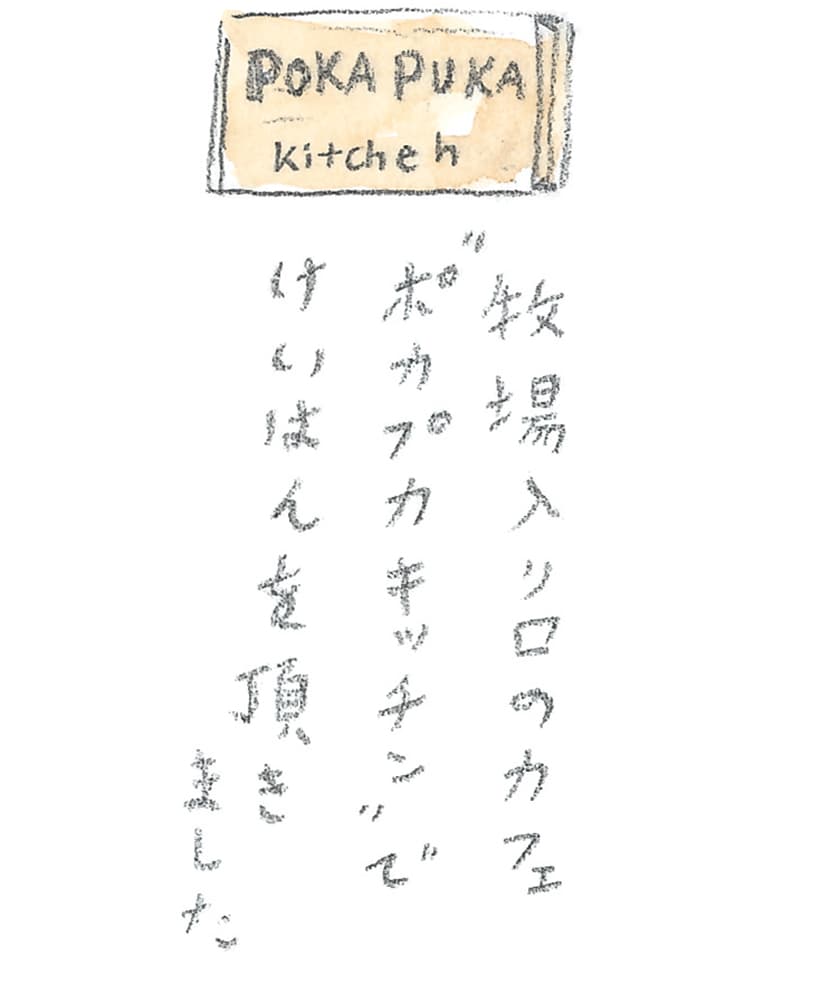 POKA PUKA
kitchen
牧場入り口のカフェ
"ポカプカキッチン"で
けいはんを頂き
ました